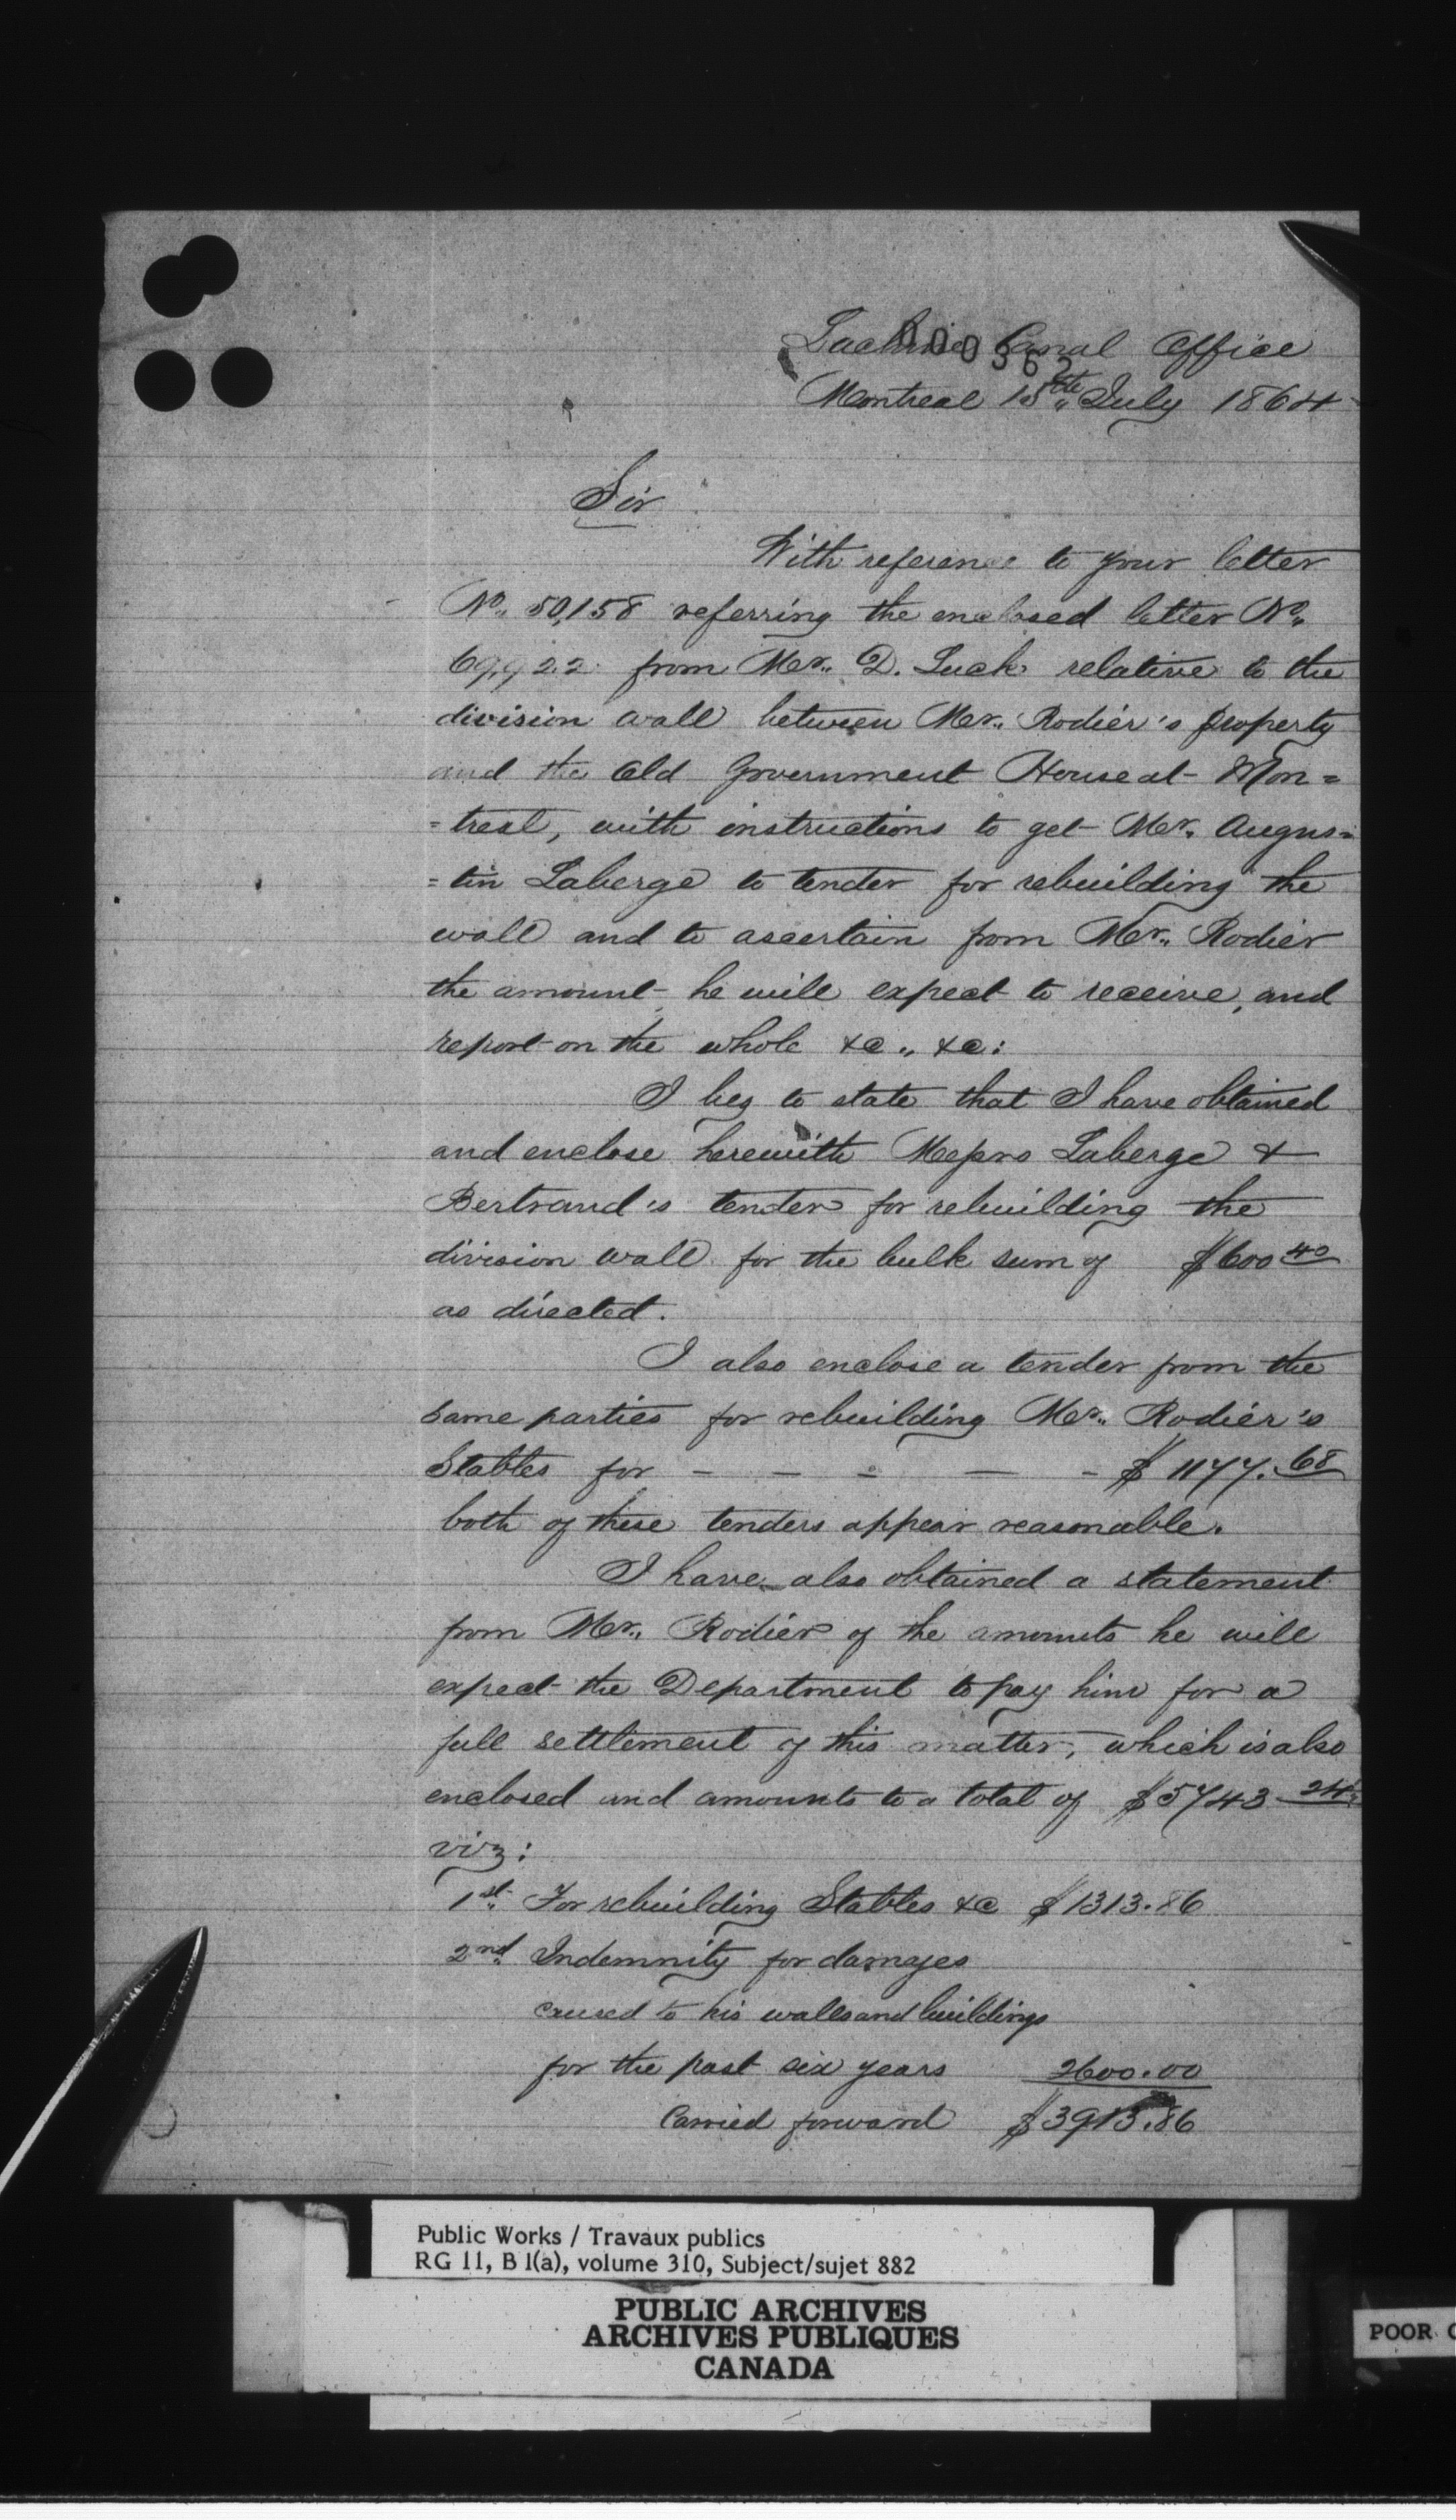 Lachine Canal Office
000562
Montreal 15th July 1864
Sir
With reference to your letter
No. 50,158 referring the enclosed letter No.
69,922 from Mr. D. Luck relative to the
division wall between Mr. Rodier's property
and the Old Government House at Mon=
=treal, with instructions to get Mr. Augus=
=tin Laberge to tender for rebuilding the
wall and to ascertain from Mr. Rodier
the amount he will expect to receive, and
report on the whole &c., &c:
I beg to state that I have obtained
and enclose herewith Messrs Laberge &
Bertrand's tender for rebuilding the
division wall for the bulk sum of $600 40
as directed.
I also enclose a tender from the
same parties for rebuilding Mr. Rodier's
Stables for - - - - - $1177.68
both of these tenders appear reasonable.
I have also obtained a statement
from Mr. Rodier of the amounts he will
expect the Department to pay him for a
full settlement of this matter, which is also
enclosed and amounts to a total of $5743 24
viz:
1st. For rebuilding Stables &c $1313.86
2nd. Indemnity for damages
caused to his walls and buildings
for the past six years 2600.00
Carried forward $3913.86
Public Works / Travaux publics
RG 11, B 1(a), volume 310, Subject/sujet 882
PUBLIC ARCHIVES
ARCHIVES PUBLIQUES
CANADA
POOR